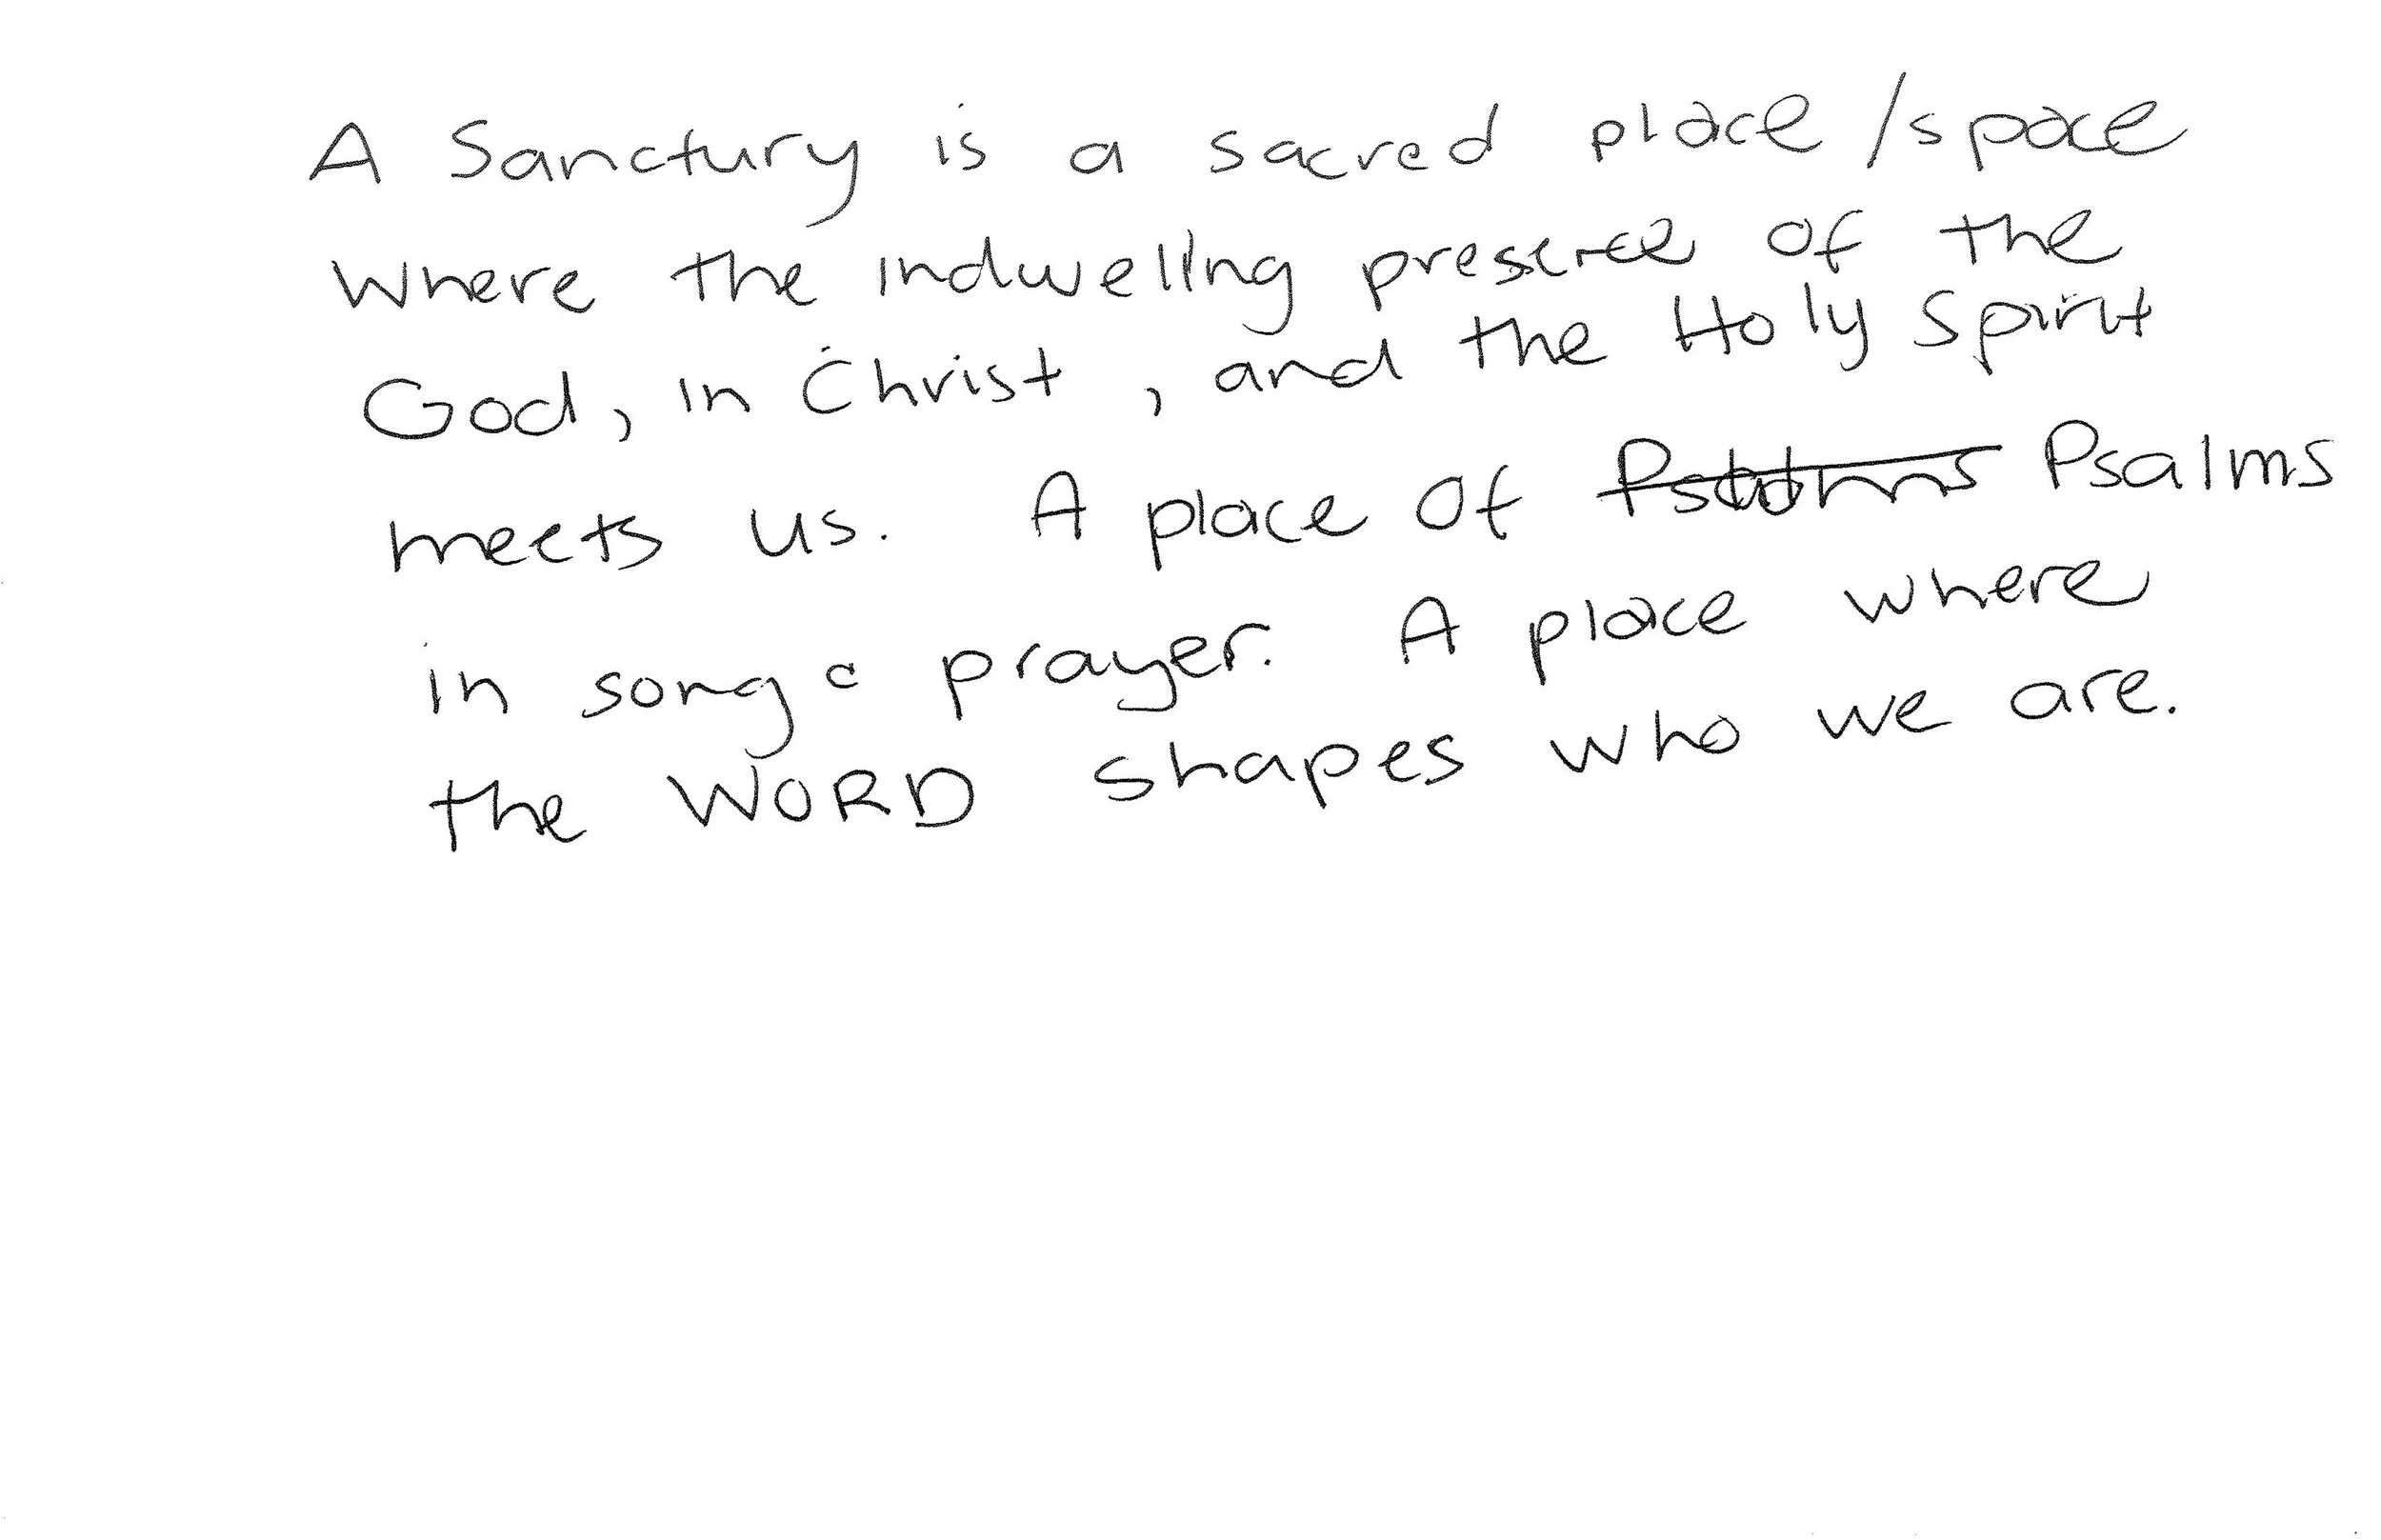 A Sanctury is a sacred place/space
where the indwelling presence of the
God, in Christ, and the Holy Spirit
meets us. A place of Psalms
in song c prayer. A place where
the WORD shapes who we are.